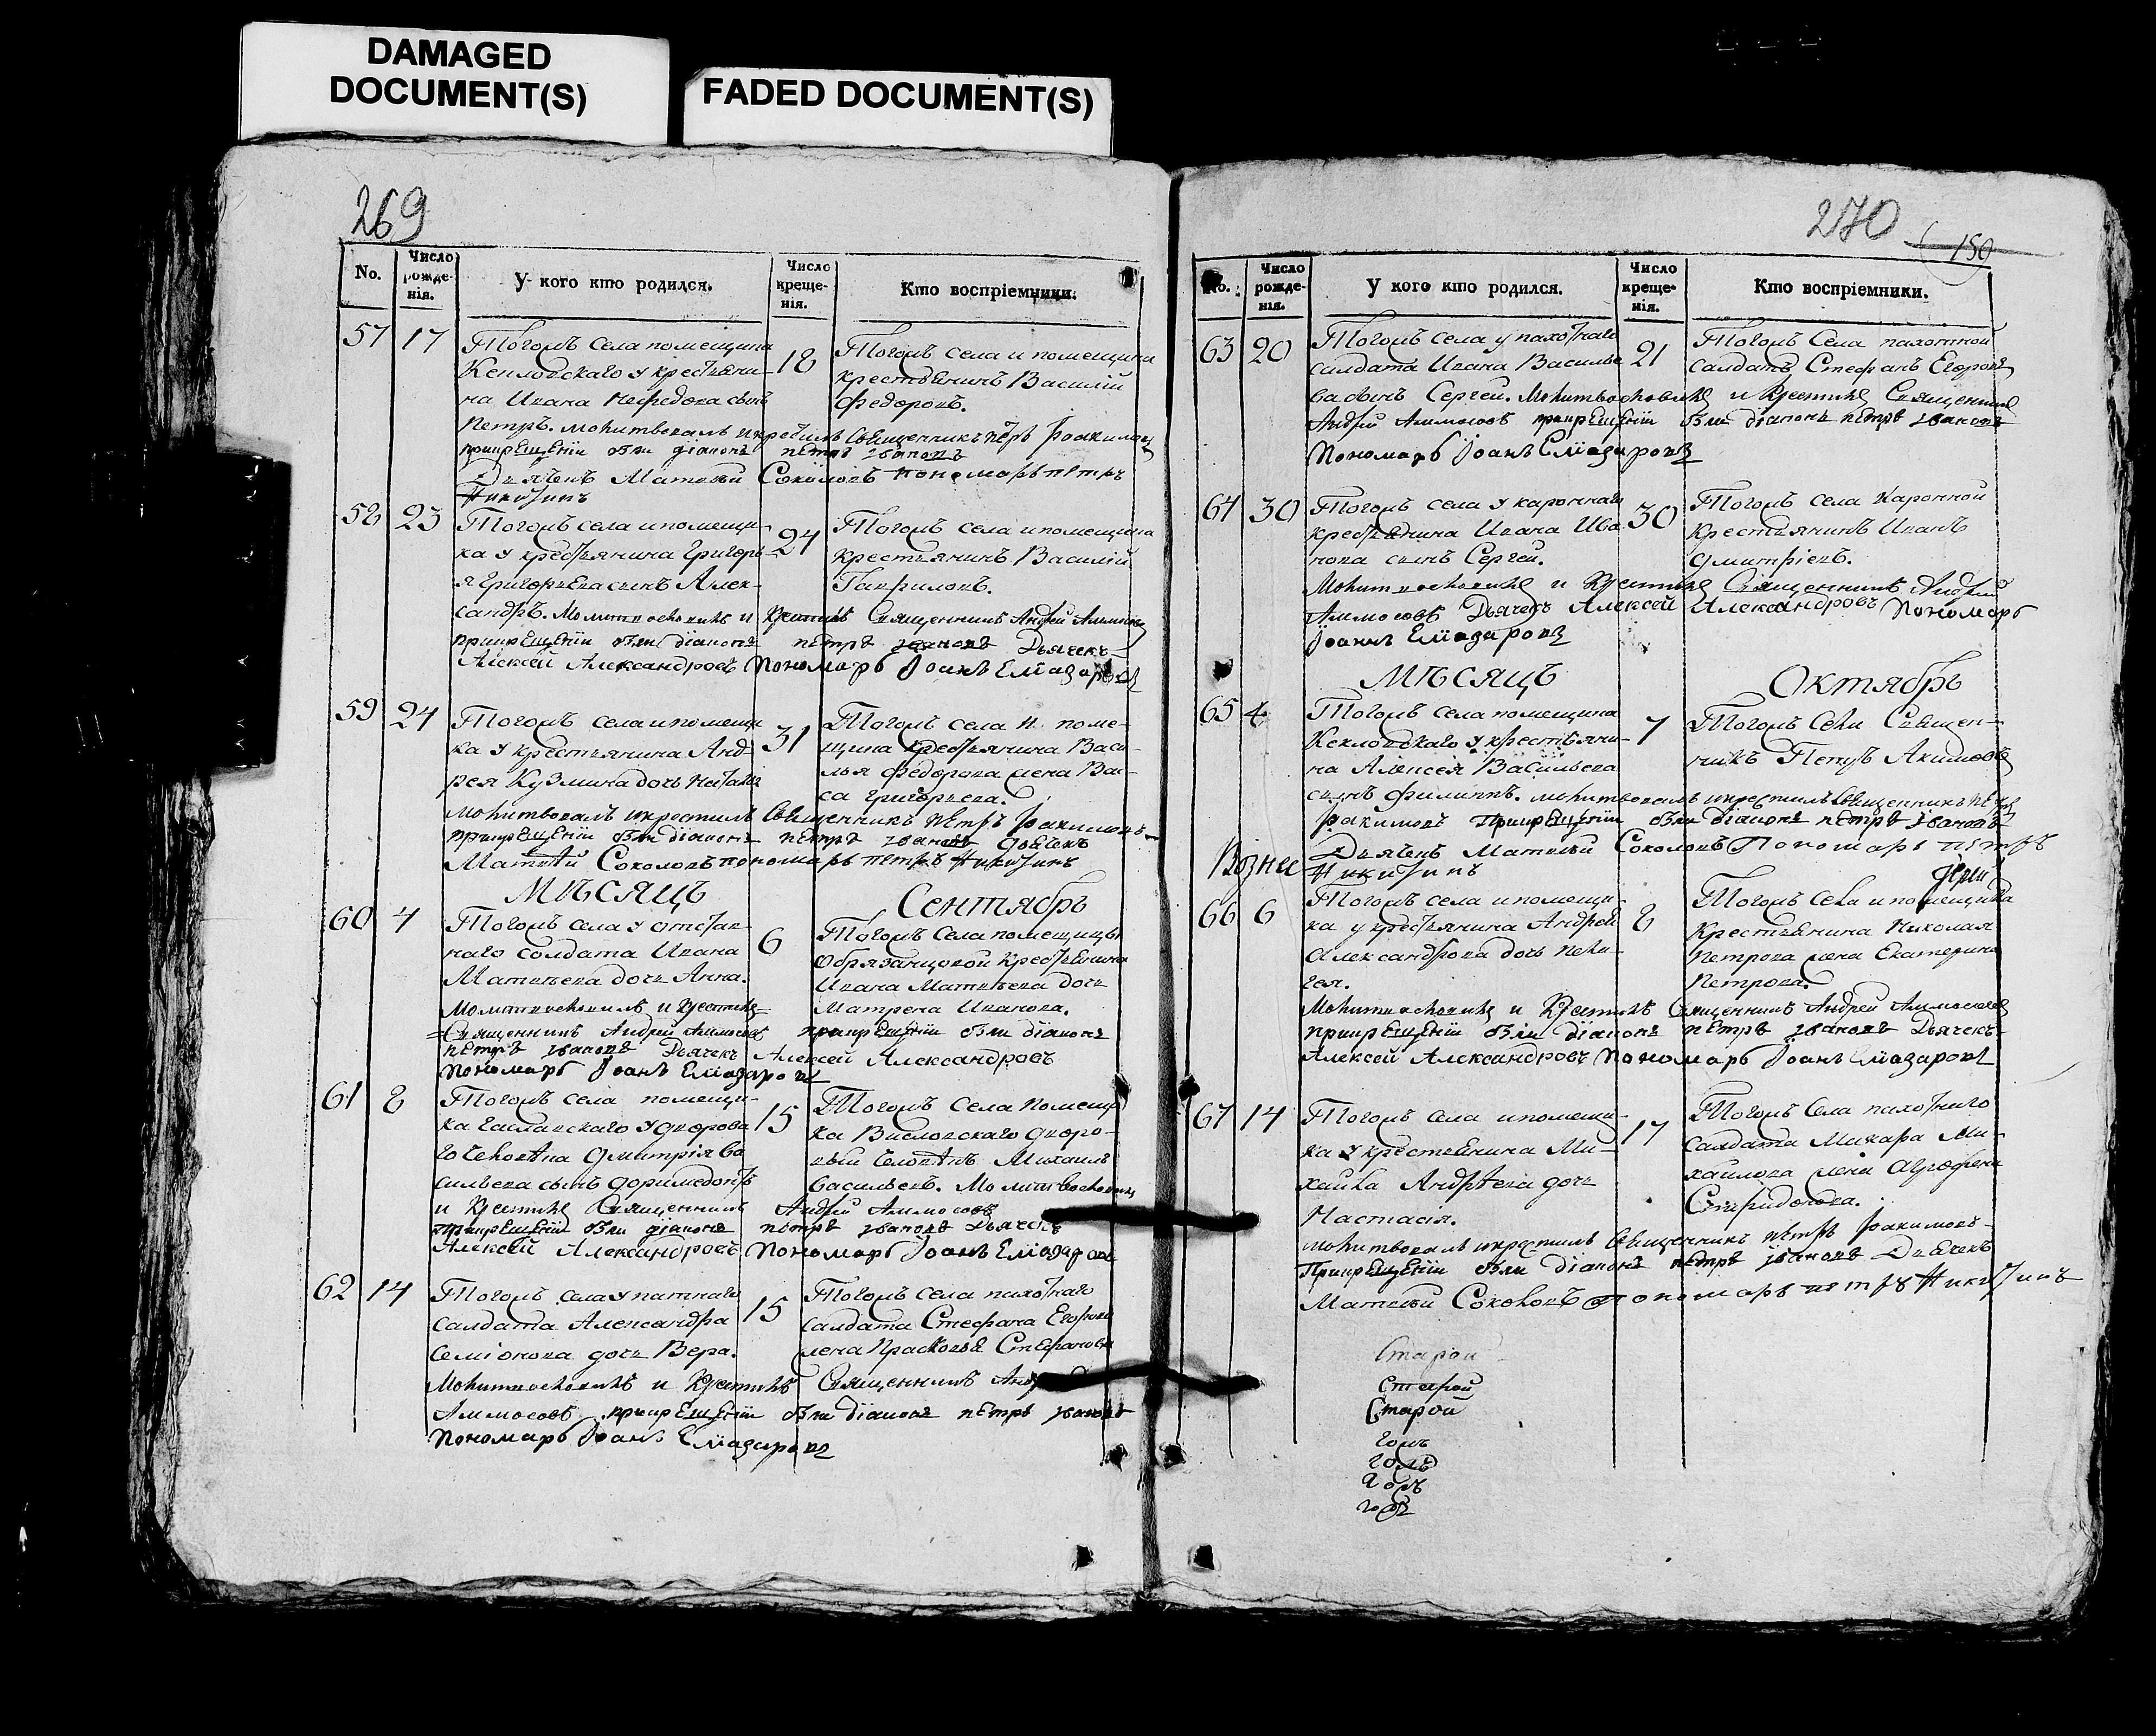 DAMAGED
DOCUMENT(S)
FADED DOCUMENT(S)
269
No.
Число рожденія.
У кого кто родился.
Число крещенія.
Кто воспріемники.
57 17
Тогожъ села помещика
у крестьяни-
на Ивана Нефедова сынъ
Петръ. молитвовалъ и крестилъ Священникъ петръ Іоакимовъ
при крещеніи были діаконъ петръ ивановъ
Дьячекъ Матвей Соколовъ пономарь петръ
Никитинъ
18
Тогожъ села и помещика
крестьянинъ Василій
Федоровъ.
58 23
Тогожъ села и помещи-
ка у крестьянина Григорь-
я Григорьева сынъ Алек-
сандръ. Молитвословилъ и крестилъ Священникъ Андрей Аммосовъ
при крещеніи были діаконъ петръ ивановъ Дьячекъ
Алексей Александровъ Пономарь Іоанъ Елиазаровъ
24
Тогожъ села и помещика
крестьянинъ Василій
Гавриловъ.
59 24
Тогожъ села и помещи
ка у крестьянина Анд-
рея Кузмина дочь Наталья
молитвовалъ и крестилъ Священникъ петръ Іоакимовъ
при крещеніи были діаконъ петръ ивановъ Дьячекъ
Матвей Соколовъ пономарь петръ Никитинъ
31
Тогожъ села и поме-
щика крестьянина Васи-
лья Федорова жена
Григорьева.
Мѣсяцъ Сентябрь
60 4
Тогожъ села у отстав-
наго солдата Ивана
Матвеева дочь Анна.
Молитвословилъ и крестилъ
Священникъ Андрей Аммосовъ при крещеніи были діаконъ
петръ ивановъ Дьячекъ Алексей Александровъ
Пономарь Іоанъ Елиазаровъ
6
Тогожъ Села помещицы
Обрязанцовой крестьянина
Ивана Матвеева дочь
Матрена Иванова.
61 8
Тогожъ села помещи-
ка у дворова
го человѣка Дмитрія Ва
сильева сынъ Доримедонтъ
и крестилъ Священникъ Андрей Аммосовъ
при крещеніи были діаконъ петръ ивановъ Дьячекъ
Алексей Александровъ Пономарь Іоанъ Елиазаровъ
15
Тогожъ села Помещи
ка Висловскаго дворо-
вый человѣкъ Михаилъ
Васильевъ. Молитвословилъ
62 14
Тогожъ села у пахатнаго
салдата Александра
Семіонова дочь Вера.
Молитвословилъ и крестилъ Священникъ Андрей
Аммосовъ при крещеніи были діаконъ петръ ивановъ
Пономарь Іоанъ Елиазаровъ
15
Тогожъ села пахотнаго
салдата Стефана Егорова
жена Прасковья Стефанова
270
150
No.
Число рожденія.
У кого кто родился.
Число крещенія.
Кто воспріемники.
63 20
Тогожъ села у пахотнаго
салдата Ивана Василье
ва сынъ Сергей. Молитвословилъ и крестилъ Священникъ
Андрей Аммосовъ при крещеніи были діаконъ петръ ивановъ
Пономарь Іоанъ Елиазаровъ
21
Тогожъ Села пахотной
салдатъ Стефанъ Егоровъ
64 30
Тогожъ села у каронного
крестьянина Ивана Ива
нова сынъ Сергей.
Молитвословилъ и крестилъ Священникъ Андрей
Аммосовъ Дьячекъ Алексей Александровъ Пономарь
Іоанъ Елиазаровъ
30
Тогожъ села Каронной
Крестьянинъ Иванъ
Дмитріевъ.
Мѣсяцъ Октябрь
65 4
Тогожъ села помещика
у крестьяни-
на Алексея Васильева
сынъ Филиппъ. молитвовалъ и крестилъ Священникъ петръ
Іоакимовъ при крещеніи были діаконъ петръ ивановъ
Дьячекъ Матвей Соколовъ Пономарь петръ
Никитинъ
7
Тогожъ Села Священ-
никъ Петръ Акимовъ
Вознес
66 6
Тогожъ села и помещи-
ка у крестьянина Андрей
Александрова дочь Пела-
гея.
Молитвословилъ и крестилъ Священникъ Андрей Аммосовъ
при крещеніи были діаконъ петръ ивановъ Дьячекъ
Алексей Александровъ Пономарь Іоанъ Елиазаровъ
8
Тогожъ Села и помещика
Крестьянина Николая
Петрова жена Екатерина
Петрова.
67 14
Тогожъ Села и помещи-
ка у крестьянина Ми-
хайла Андрѣева дочь
Настасія.
молитвовалъ и крестилъ Священникъ петръ Іоакимовъ
При крещеніи были діаконъ петръ ивановъ Дьячекъ
Матвей Соколовъ пономарь петръ Никитинъ
17
Тогожъ Села пахотнаго
салдата Макара Ми-
хаилова жена Агрофена
Спиридонова.
Старой
Старой
Старой
годъ
годъ
годъ
годъ